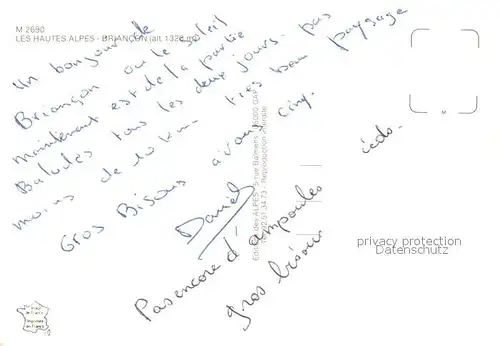 M 2690
LES HAUTES ALPES - BRIANÇON (alt. 1326 m)
Un bonjour de
Briançon où le soleil
maintenant est de la partie
Balades tous les deux jours. pas
moins de 10 km. très beau paysage
Gros Bisous à vous cinq.
Daniel
Pas encore d'ampoules
gros bisous
Editions des ALPES
5 rue Balmens 05000 GAP
Reproduction interdite
privacy protection
Datenschutz
M